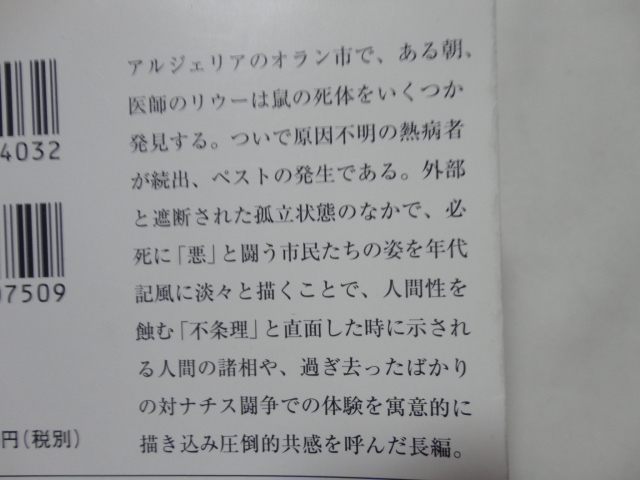 アルジェリアのオラン市で、ある朝、
医師のリウーは鼠の死体をいくつか
発見する。ついで原因不明の熱病者
が続出、ペストの発生である。外部
と遮断された孤立状態のなかで、必
死に「悪」と闘う市民たちの姿を年代
記風に淡々と描くことで、人間性を
蝕む「不条理」と直面した時に示され
る人間の諸相や、過ぎ去ったばかり
の対ナチス闘争での体験を寓意的に
描き込み圧倒的共感を呼んだ長編。
4032
07509
円(税別)